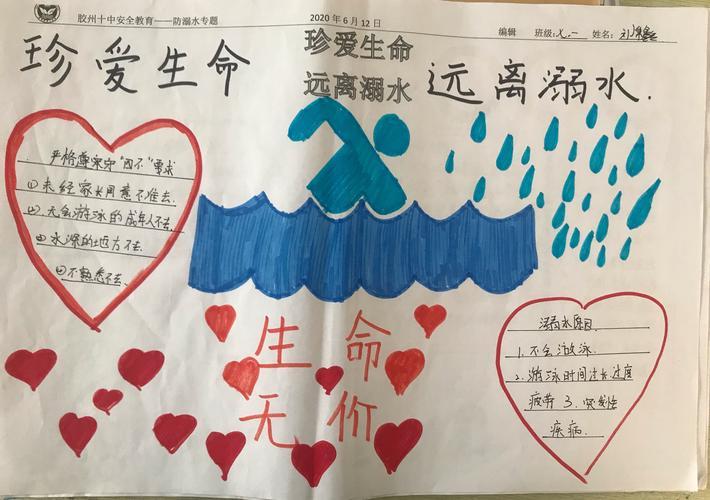 胶州十中安全教育——防溺水专题
2020年6月12日
编辑 班级:七.一 姓名:
珍爱生命
珍爱生命
远离溺水
远离溺水.
严格遵守"四不"要求
①未经家长同意不准去.
②.无会游泳的成年人不去.
水深的地方不去.
④不熟悉不去.
生命
无价
溺水原因
1.不会游泳.
2.游泳时间过长.过度
疲劳 3.突发性
疾病.